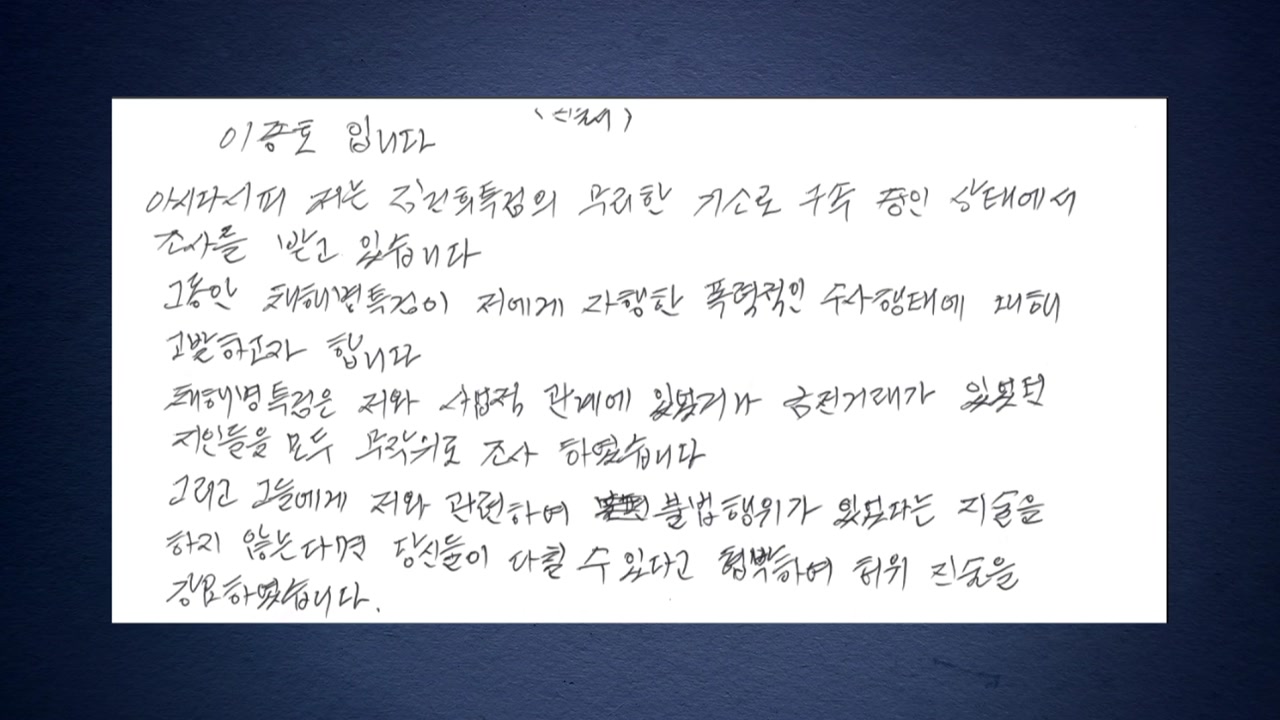 이종호 입니다
아시다시피 저는 김건희특검의 무리한 기소로 구속 중인 상태에서
조사를 받고 있습니다
그동안 채해병특검이 저에게 자행한 폭력적인 수사행태에 대해
고발하고자 합니다
채해병특검은 저와 사업적 관계에 있었거나 금전거래가 있었던
지인들을 모두 무작위로 조사 하였습니다
그리고 그들에게 저와 관련하여 불법행위가 있었다는 진술을
하지 않는다면 당신들이 다칠 수 있다고 협박하여 허위 진술을
강요하였습니다.